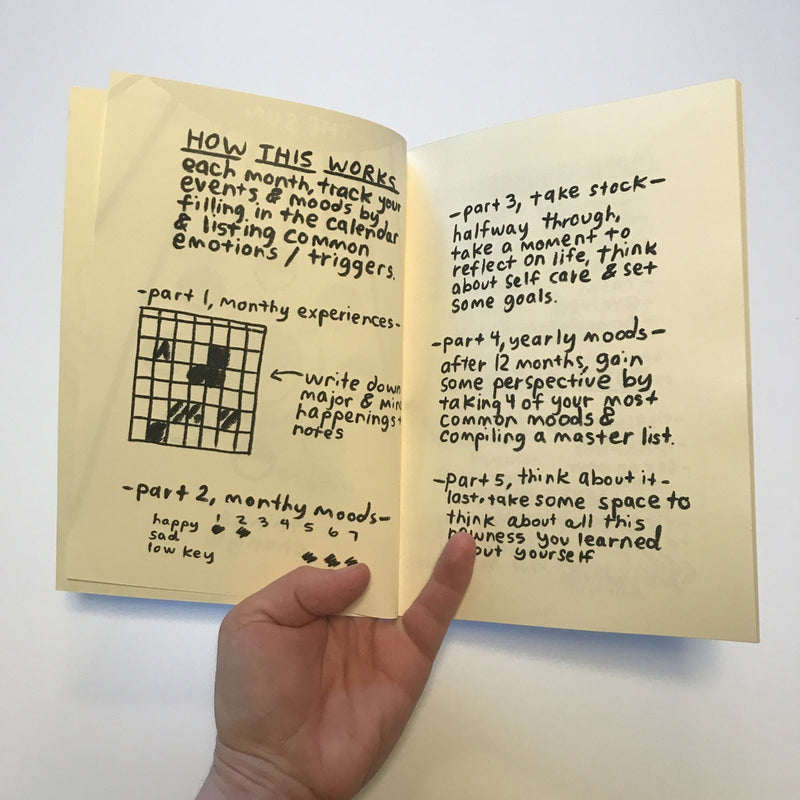 HOW THIS WORKS
each month, track your
events & moods by
filling in the calendar
& listing common
emotions / triggers.
-part 1, monthy experiences-
A
write down
major & min
happenings +
notes
-part 2, monthy moods-
1 2 3 4 5 6 7
happy
sad
low key
-part 3, take stock-
halfway through,
take a moment to
reflect on life, think
about self care & set
some goals.
-part 4, yearly moods-
after 12 months, gain
some perspective by
taking 4 of your most
common moods &
compiling a master list.
-part 5, think about it-
last, take some space to
think about all this
newness you learned
out yourself